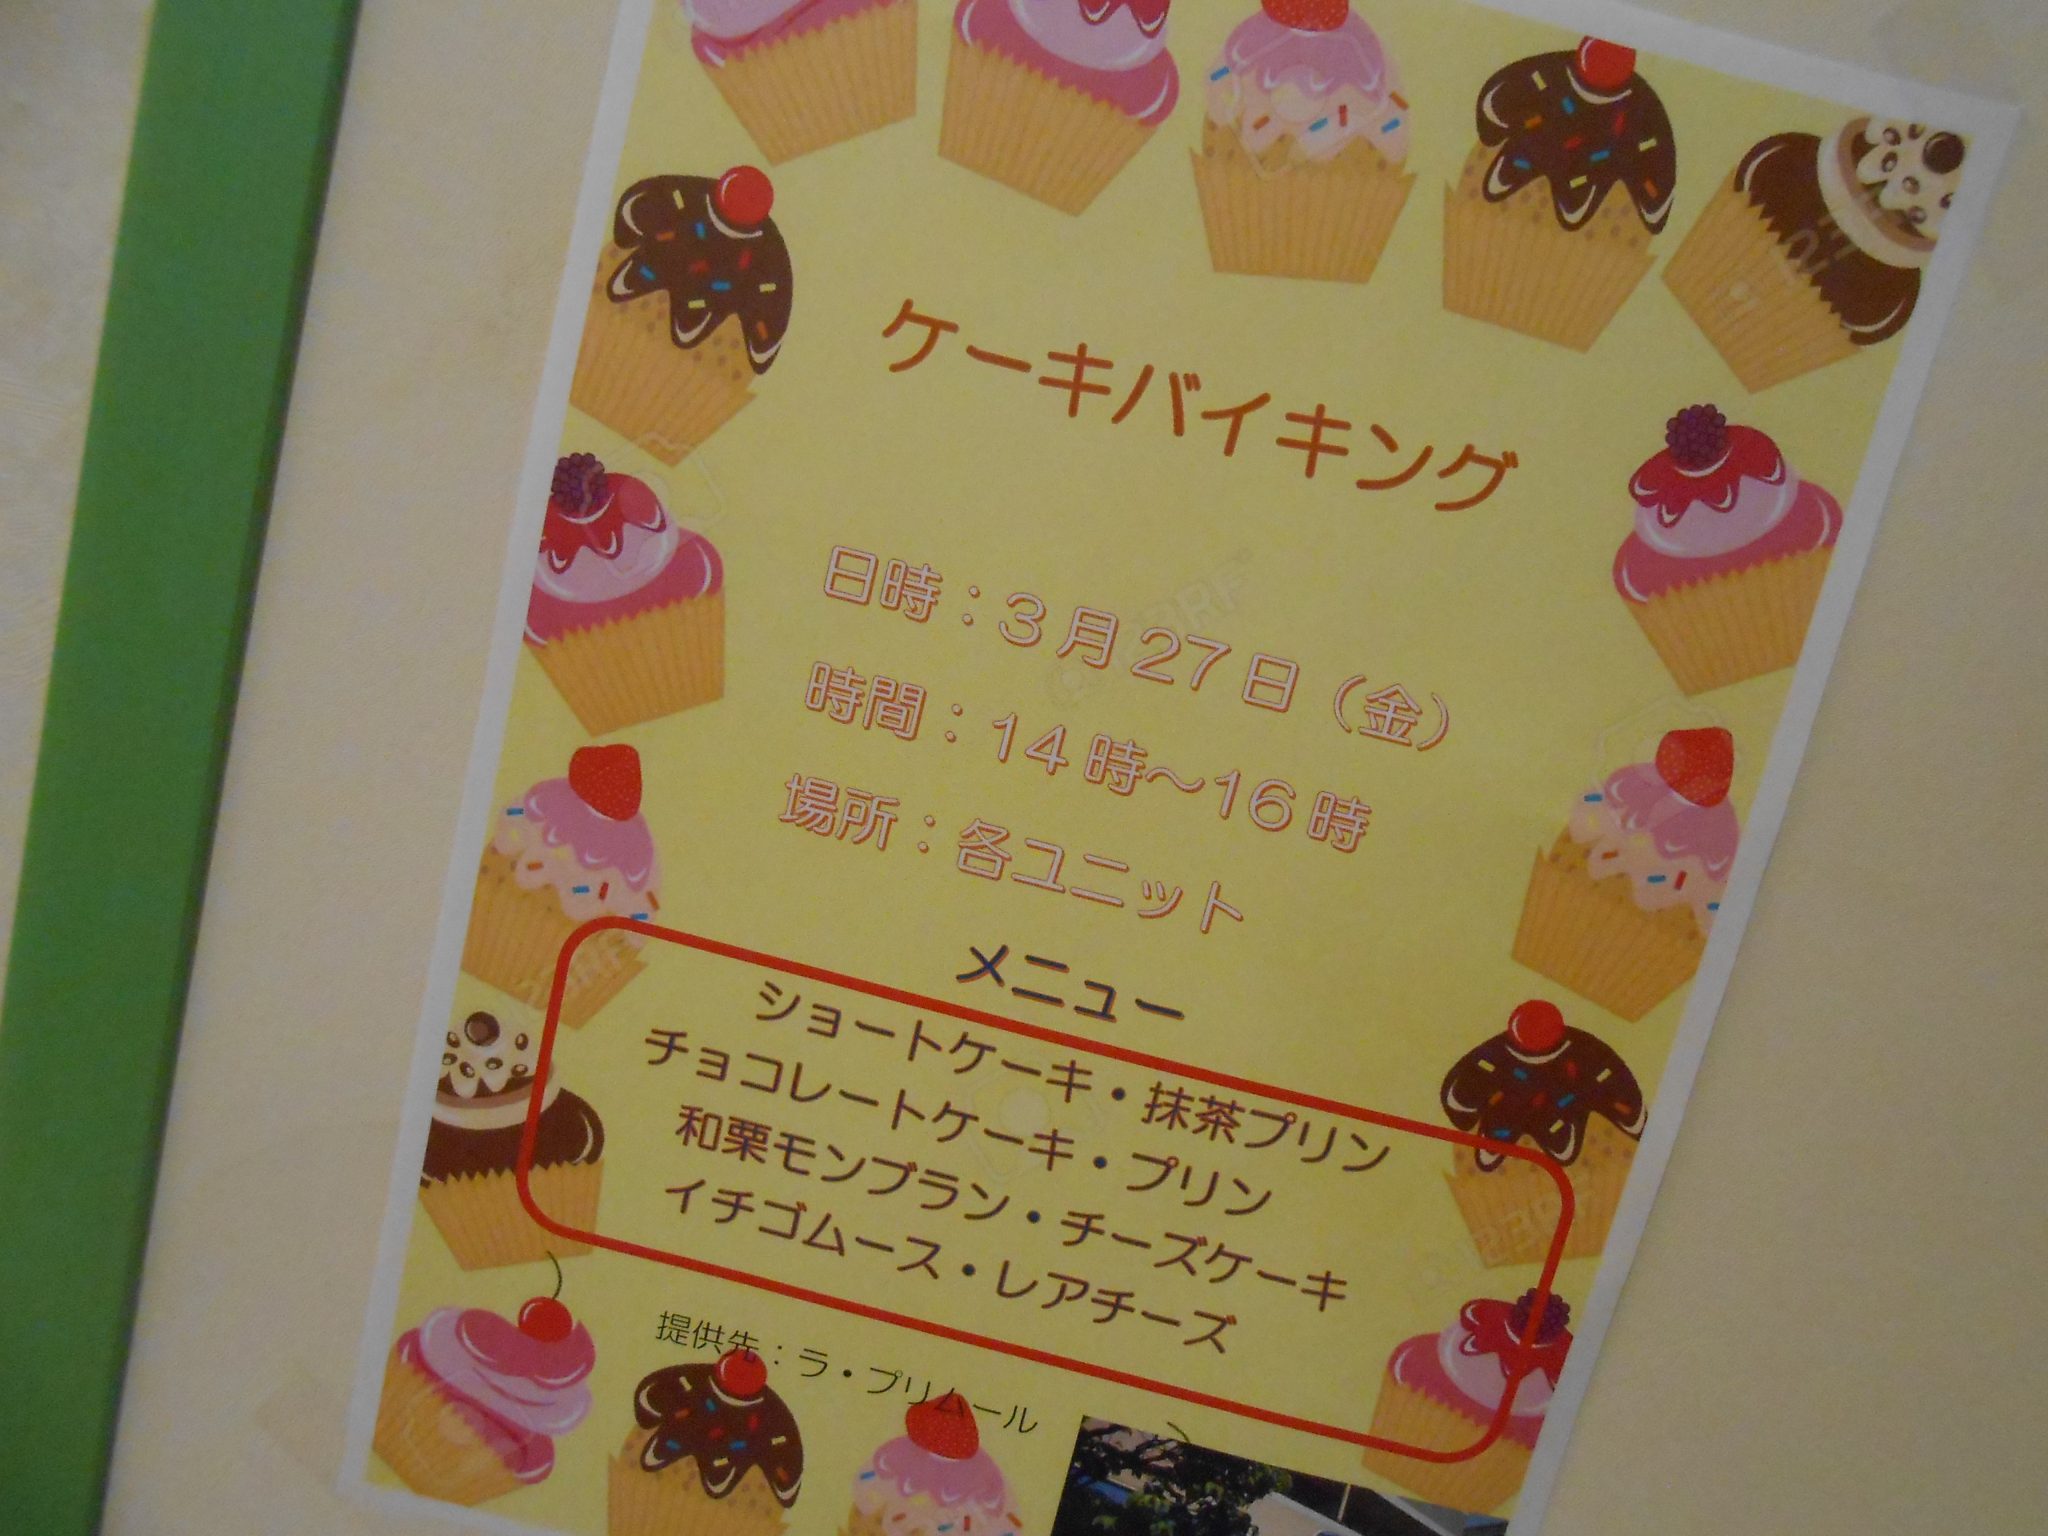 ケーキバイキング
日時：3月27日（金）
時間：14時～16時
場所：各ユニット
メニュー
ショートケーキ・抹茶プリン
チョコレートケーキ・プリン
和栗モンブラン・チーズケーキ
イチゴムース・レアチーズ
提供先：ラ・プリムール